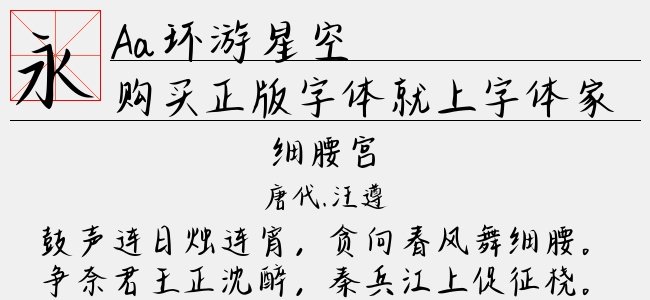 永
Aa环游星空
购买正版字体就上字体家
细腰宫
唐代.汪遵
鼓声连日烛连宵，贪向春风舞细腰。
争奈君王正沈醉，秦兵江上促征桡。